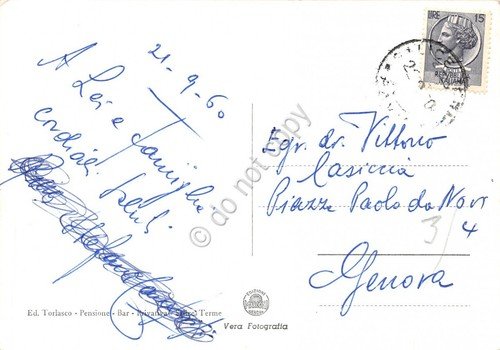 21-9-60
A Lei e
Famiglia
cordiali
saluti
LIRE 15
Egr. dr. Vittorio
Casiccia
Piazza Paolo da Novi
3/4
Genova
Ed. Torlasco - Pensione - Bar - Terme
Vera Fotografia
do not copy